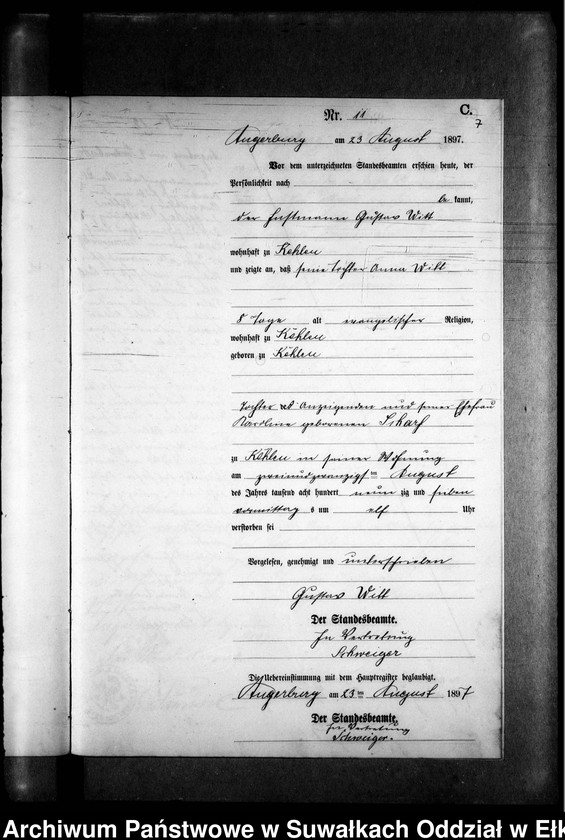 C.
7
Nr. 11
Angerburg am 23 August 1897.
Vor dem unterzeichneten Standesbeamten erschien heute, der
Persönlichkeit nach
be kannt,
der Instmann Gustav Witt
wohnhaft zu Kehlen
und zeigte an, daß seine Tochter Anna Witt
8 Tage alt evangelischer Religion,
wohnhaft zu Kehlen
geboren zu Kehlen
Tochter des Anzeigenden und seiner Ehefrau
Karoline geborenen Scharf
zu Kehlen in seiner Wohnung
am zweiundzwanzigsten August
des Jahres tausend acht hundert neun zig und sieben
vormittag s um elf Uhr
verstorben sei
Vorgelesen, genehmigt und unterschrieben
Gustav Witt
Der Standesbeamte.
In Vertretung
Schweiger
Die Uebereinstimmung mit dem Hauptregister beglaubigt.
Angerburg am 23 ten August 1897
Der Standesbeamte.
In Vertretung
Schweiger.
Archiwum Państwowe w Suwałkach Oddział w Ełk